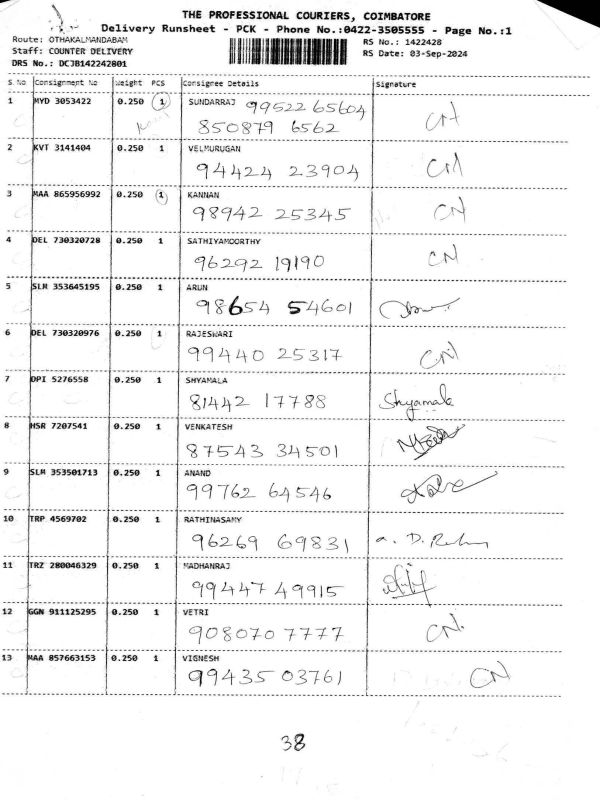 THE PROFESSIONAL COURIERS, COIMBATORE
Delivery Runsheet - PCK - Phone No.:0422-3505555 - Page No.:1
Route: OTHAKALMANDABAM RS No.: 1422428
Staff: COUNTER DELIVERY RS Date: 03-Sep-2024
DRS No.: DCJB142242801
S.No Consignment No Weight PCS Consignee Details Signature
1 MYD 3053422 0.250 1 SUNDARRAJ 99522 65604 CN
850879 6562
2 KVT 3141404 0.250 1 VELMURUGAN CN
94424 23904
3 MAA 865956992 0.250 1 KANNAN CN
98942 25345
4 DEL 730320728 0.250 1 SATHIYAMOORTHY CN
96292 19190
5 SLM 353645195 0.250 1 ARUN
98654 54601
6 DEL 730320976 0.250 1 RAJESWARI CN
99440 25317
7 DPI 5276558 0.250 1 SHYAMALA Shyamala
81442 17788
8 HSR 7207541 0.250 1 VENKATESH
87543 34501
9 SLM 353501713 0.250 1 ANAND
99762 64546
10 TRP 4569702 0.250 1 RATHINASAMY
96269 69831 a. D.
11 TRZ 280046329 0.250 1 MADHANRAJ
99447 49915
12 GGN 911125295 0.250 1 VETRI CN.
908070 7777
13 MAA 857663153 0.250 1 VIGNESH CN
99435 03761
38